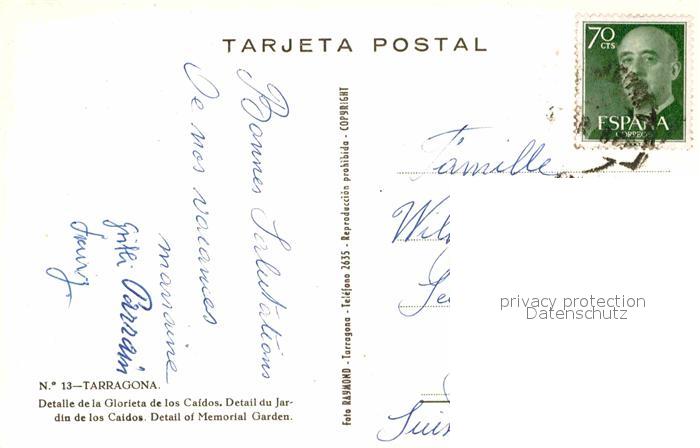 TARJETA POSTAL
70
CTS
ESPAÑA
CORREOS
Bonnes Salutations
De nos vacances
marraine
Parrain
N.º 13—TARRAGONA.
Detalle de la Glorieta de los Caídos. Detail du Jar-
din de los Caidos. Detail of Memorial Garden.
Foto RAYMOND - Tarragona - Teléfono 2635 - Reproducción prohibida - COPYRIGHT
Famille
privacy protection
Datenschutz